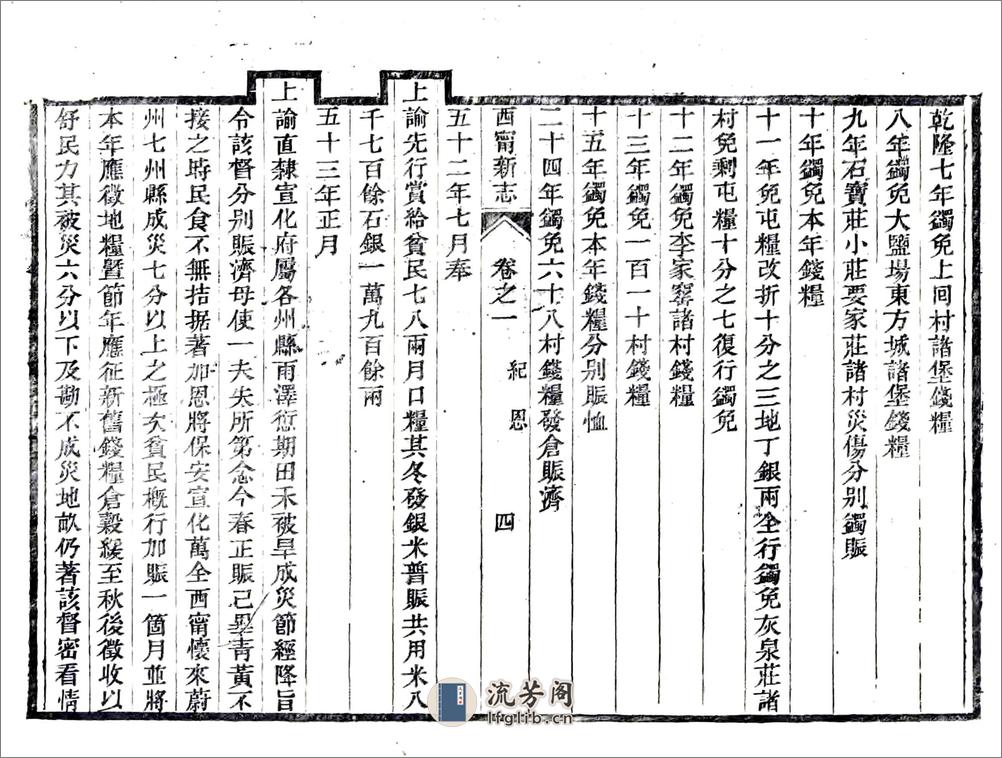 乾隆七年蠲免上囘村諸堡錢糧
八年蠲免大鹽場東方城諸堡錢糧
九年石寶莊小莊要家莊諸村災傷分别蠲賑
十年蠲免本年錢糧
十一年免屯糧改折十分之三地丁銀兩全行蠲免灰泉莊諸
村免剩屯糧十分之七復行蠲免
十二年蠲免李家窰諸村錢糧
十三年蠲免一百一十村錢糧
十五年蠲免本年錢糧分别賑恤
二十四年蠲免六十八村錢糧發倉賑濟
西甯新志 卷之一 紀恩 四
五十二年七月奉
上諭先行賞給貧民七八兩月口糧其冬發銀米普賑共用米八
千七百餘石銀一萬九百餘兩
五十三年正月
上諭直隸宣化府屬各州縣雨澤愆期田禾被旱成災節經降旨
令該督分别賑濟毋使一夫失所第念今春正賑已畢青黃不
接之時民食不無拮据著加恩將保安宣化萬全西甯懷來蔚
州七州縣成災七分以上之極次貧民概行加賑一箇月並將
本年應徵地糧暨節年應征新舊錢糧倉穀緩至秋後徵收以
舒民力其被災六分以下及勘不成災地畝仍著該督密看情
流芳阁
lfglib.cn